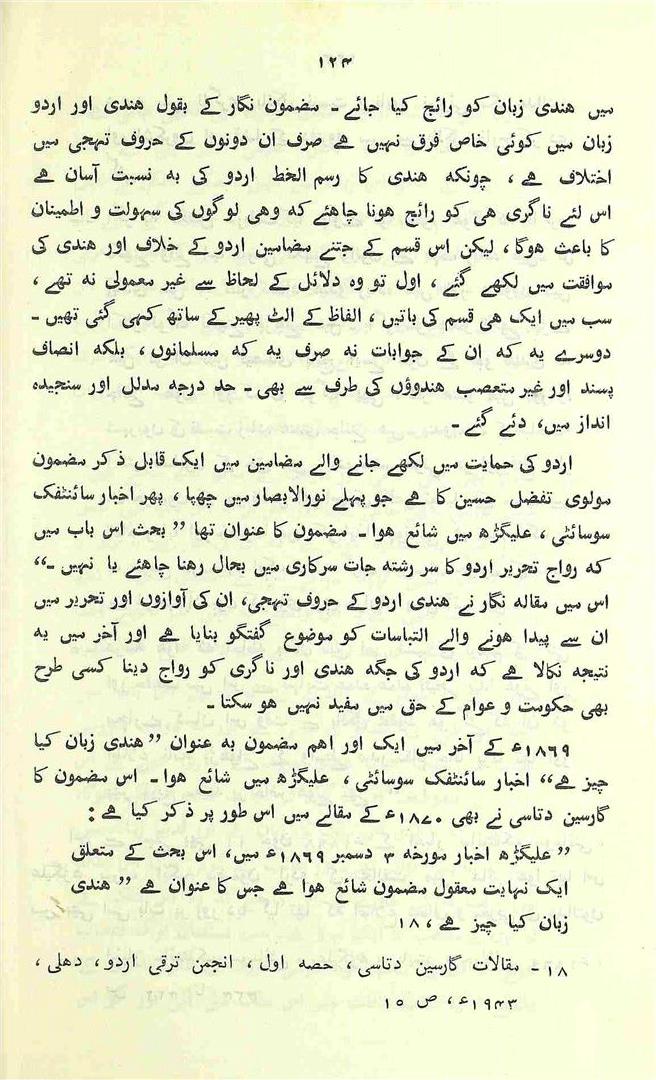 ۱۲۴
میں ھندی زبان کو رائج کیا جائے ۔ مضمون نگار کے بقول ھندی اور اردو
زبان میں کوئی خاص فرق نہیں ہے صرف ان دونوں کے حروف تہجی میں
اختلاف ہے ، چونکہ ھندی کا رسم الخط اردو کی بہ نسبت آسان ہے
اس لئے ناگری ھی کو رائج ھونا چاھئے کہ وھی لوگوں کی سہولت و اطمینان
کا باعث ھوگا ، لیکن اس قسم کے جتنے مضامین اردو کے خلاف اور ھندی کی
موافقت میں لکھے گئے ، اول تو وہ دلائل کے لحاظ سے غیر معمولی نہ تھے ،
سب میں ایک ھی قسم کی باتیں ، الفاظ کے الٹ پھیر کے ساتھ کہی گئی تھیں ۔
دوسرے یہ کہ ان کے جوابات نہ صرف یہ کہ مسلمانوں ، بلکہ انصاف
پسند اور غیر متعصب ھندوؤں کی طرف سے بھی ۔ حد درجہ مدلل اور سنجیدہ
انداز میں ، دئے گئے ۔
اردو کی حمایت میں لکھے جانے والے مضامین میں ایک قابل ذکر مضمون
مولوی تفضل حسین کا ہے جو پہلے نورالابصار میں چھپا ، پھر اخبار سائنٹفک
سوسائٹی ، علیگڑھ میں شائع ھوا ۔ مضمون کا عنوان تھا ”بحث اس باب میں
کہ رواج تحریر اردو کا سر رشتہ جات سرکاری میں بحال رھنا چاھئے یا نہیں ۔“
اس میں مقالہ نگار نے ھندی اردو کے حروف تہجی ، ان کی آوازوں اور تحریر میں
ان سے پیدا ھونے والے التباسات کو موضوع گفتگو بنایا ہے اور آخر میں یہ
نتیجہ نکالا ہے کہ اردو کی جگہ ھندی اور ناگری کو رواج دینا کسی طرح
بھی حکومت و عوام کے حق میں مفید نہیں ھو سکتا ۔
۱۸۶۹ء کے آخر میں ایک اور اھم مضمون بہ عنوان ”ھندی زبان کیا
چیز ہے“ اخبار سائنٹفک سوسائٹی ، علیگڑھ میں شائع ھوا ۔ اس مضمون کا
گارسین دتاسی نے بھی ۱۸۷۰ء کے مقالے میں اس طور پر ذکر کیا ہے :
”علیگڑھ اخبار مورخہ ۳ دسمبر ۱۸۶۹ء میں ، اس بحث کے متعلق
ایک نہایت معقول مضمون شائع ھوا ہے جس کا عنوان ہے ”ھندی
زبان کیا چیز ہے ، ۱۸
۱۸ ۔ مقالات گارسین دتاسی ، حصہ اول ، انجمن ترقی اردو ، دھلی ،
۱۹۴۳ء ، ص ۱۵